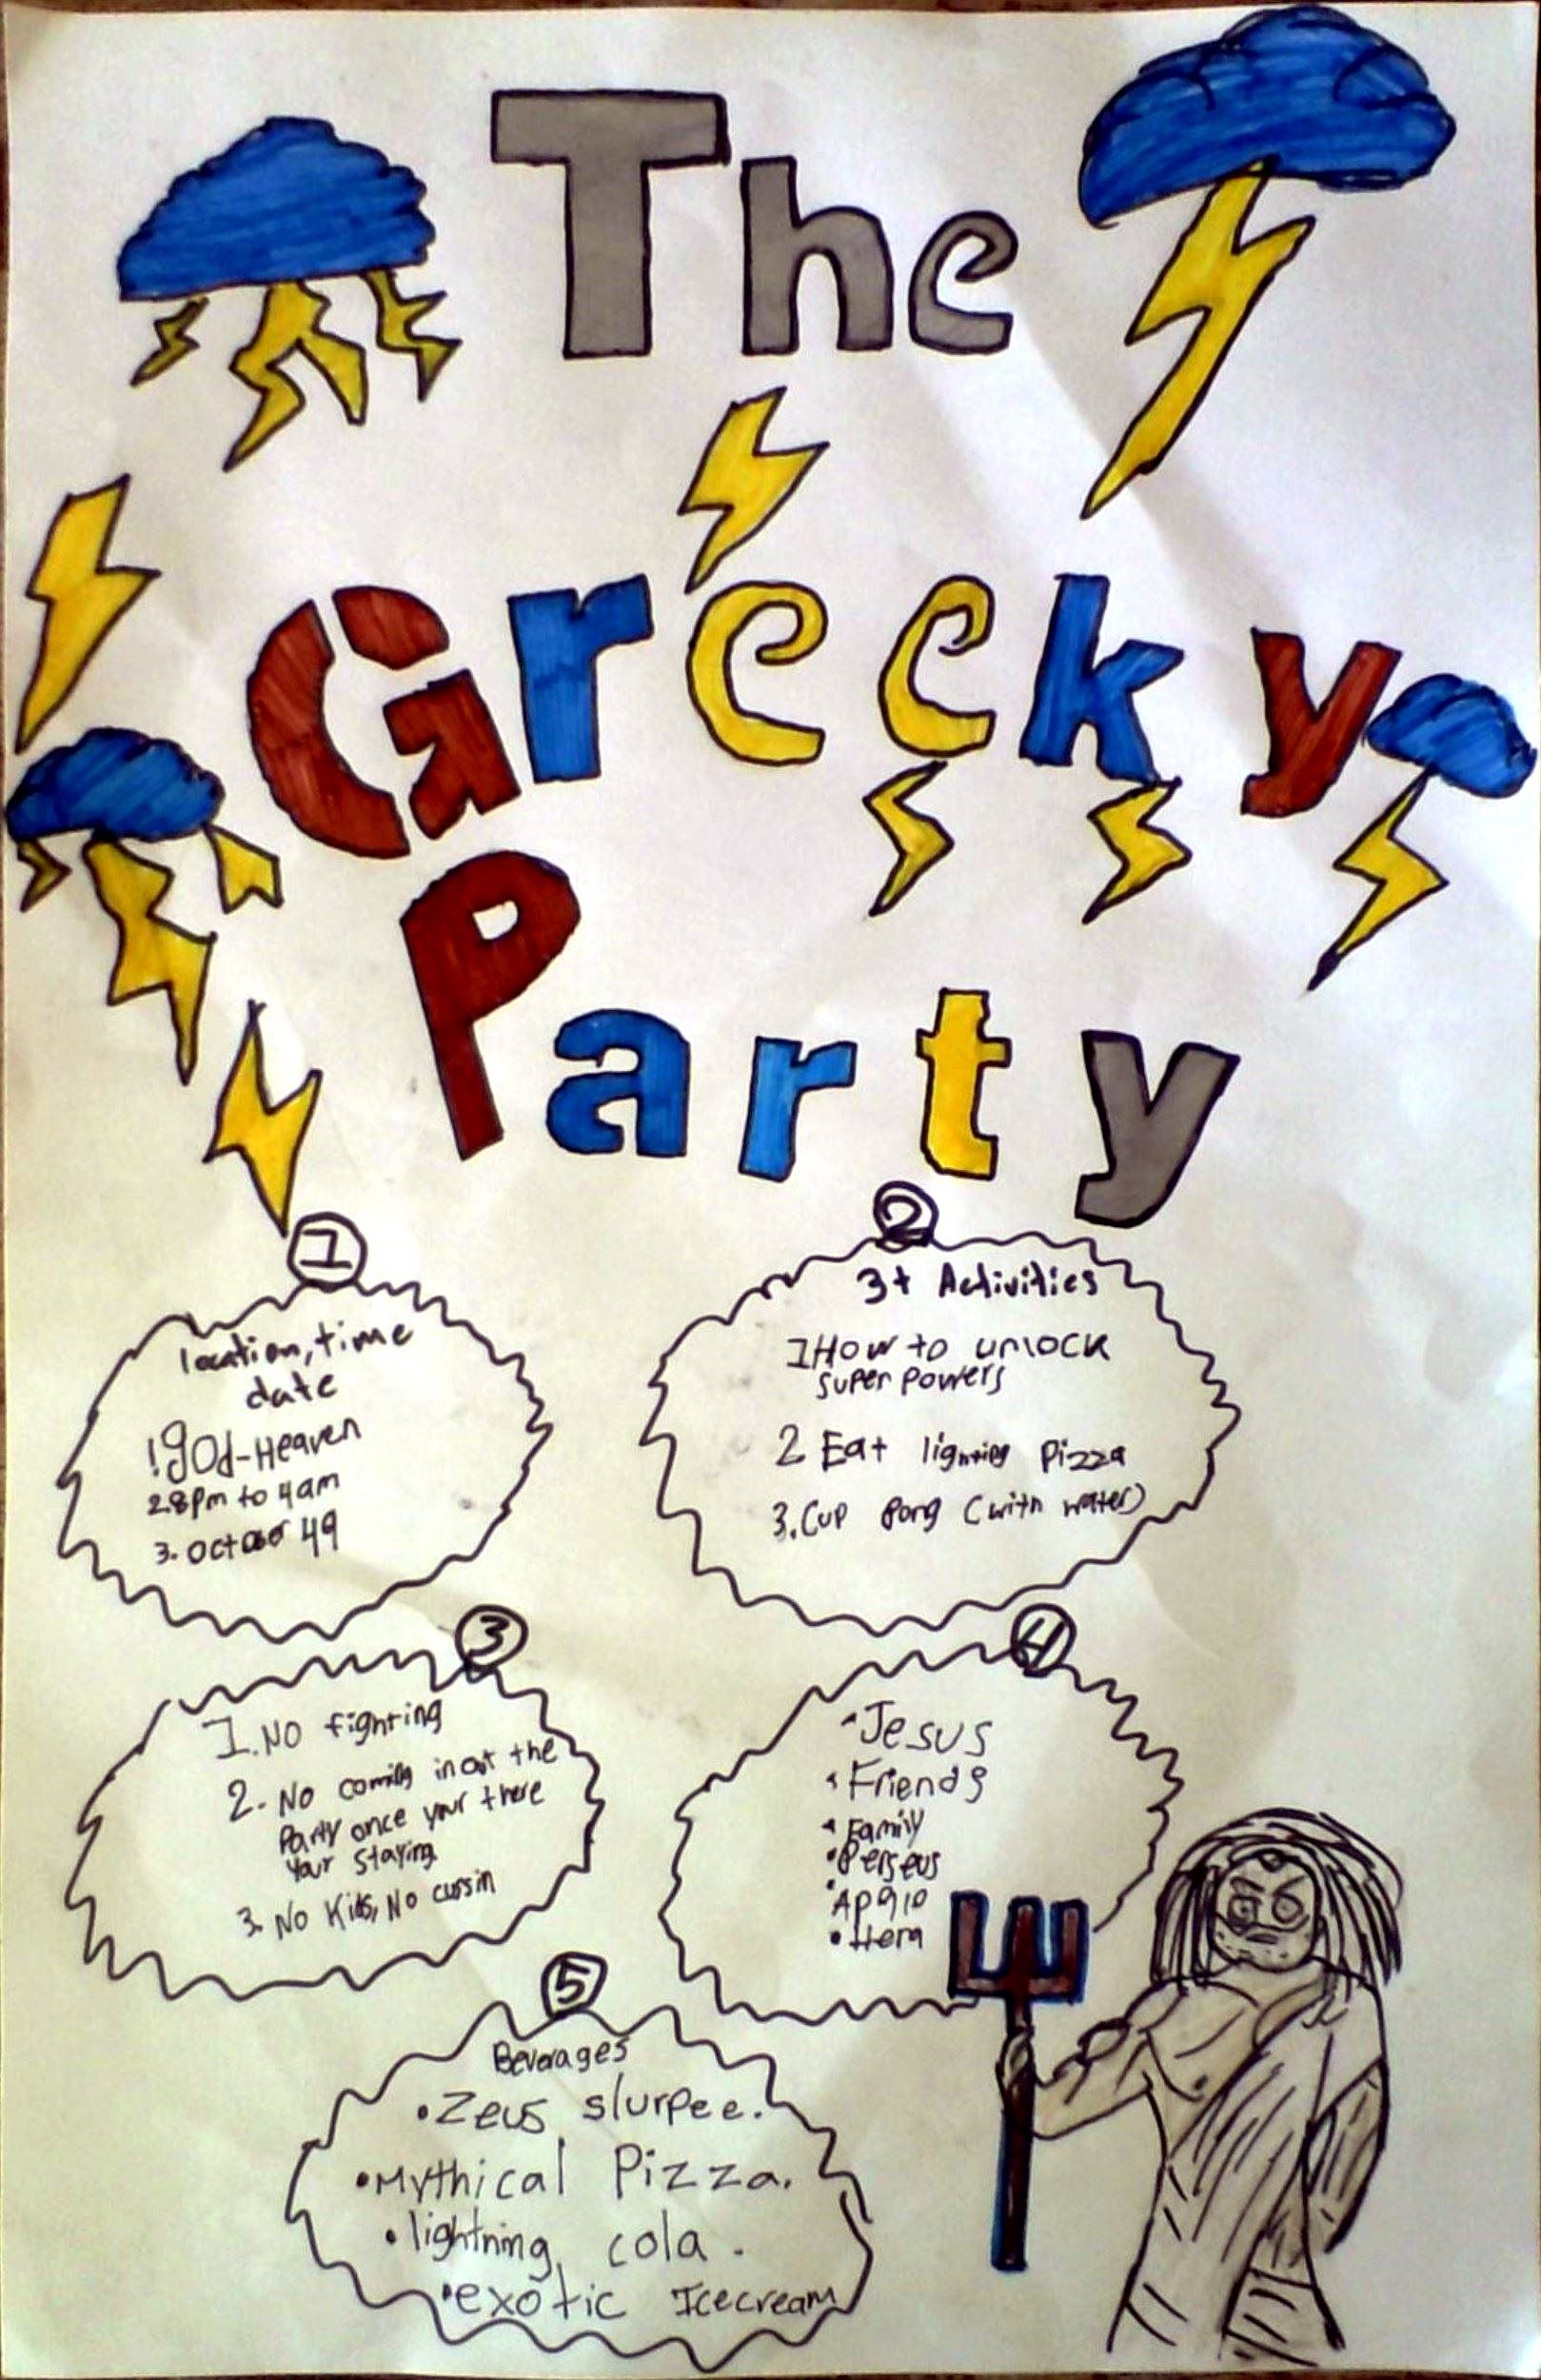 The
Greeky
Party
1
location, time
date
1 god-Heaven
2 8pm to 4am
3. october 49
2
3+ Activities
1 How to unlock
super powers
2 Eat lignting Pizza
3. Cup Pong (with water)
3
1. No fighting
2. No coming in out the
Party once your there
Your staying
3. No Kids, No cussin
4
Jesus
Friends
Family
Perseus
Apollo
Hera
5
Beverages
• Zeus slurpee.
• Mythical Pizza.
• lightning cola.
• exotic Icecream